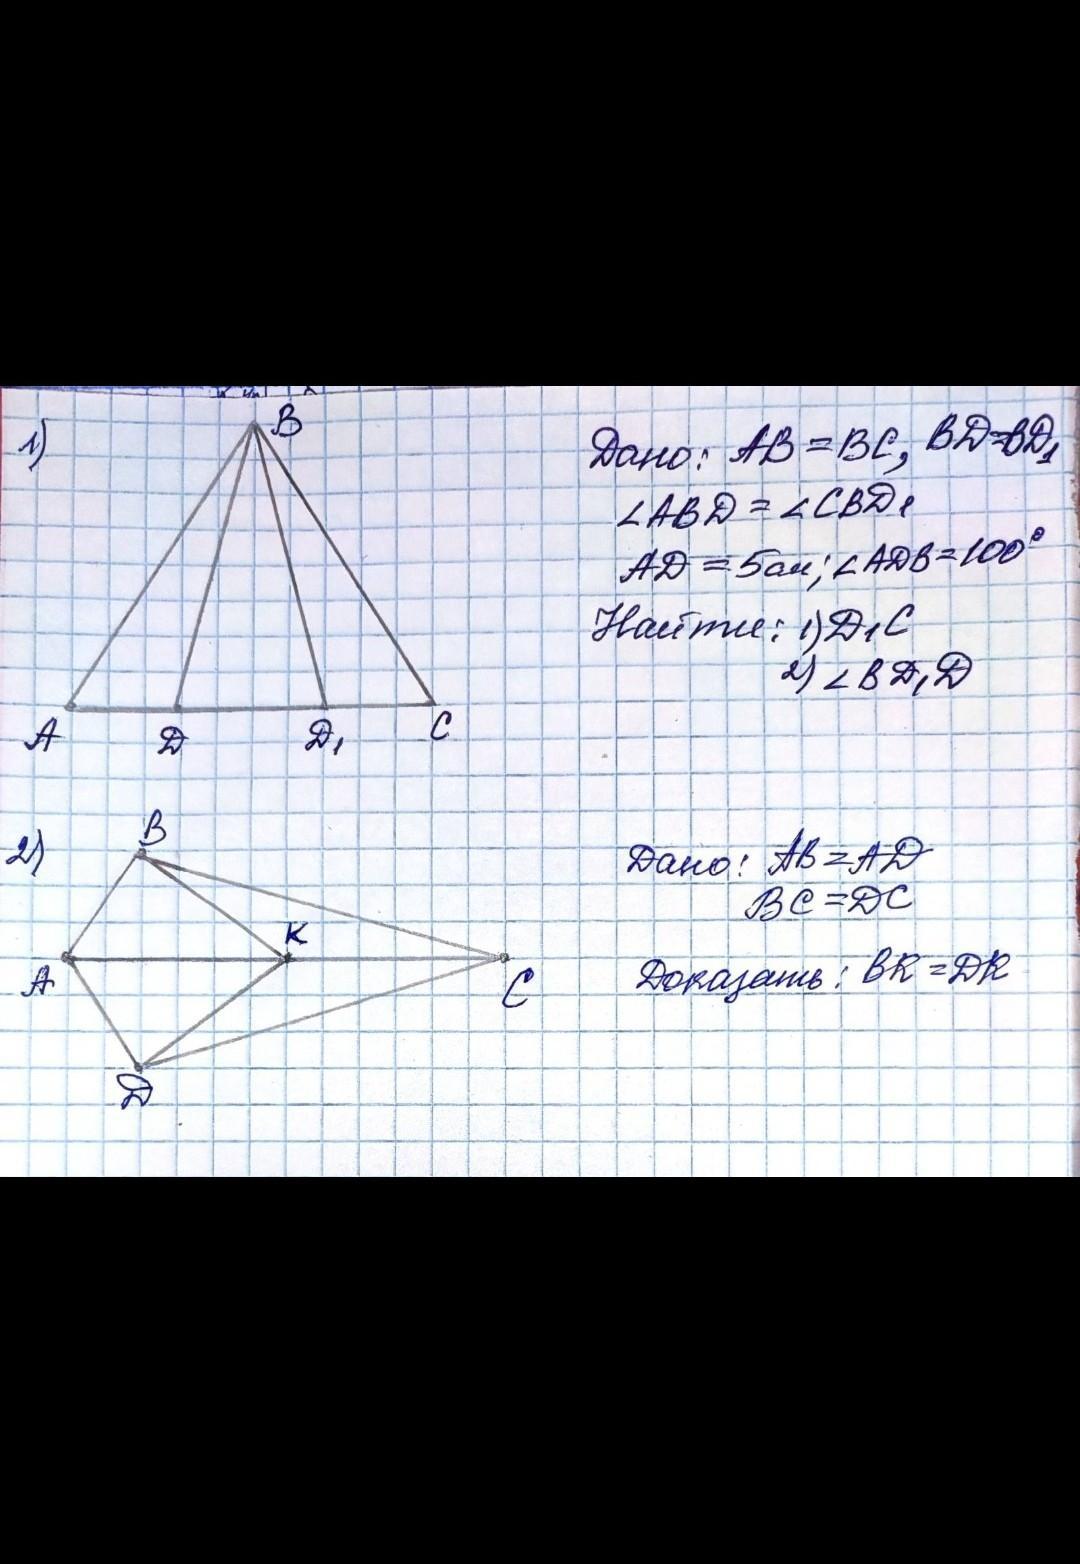 1)
B
Дано: AB = BC, BD=BD₁
∠ABD = ∠CBD₁
AD = 5см; ∠ADB=100°
Найти: 1) D₁C
2) ∠BD₁D
A D D₁ C
2)
B
Дано: AB = AD
BC = DC
K
A
C
Доказать: BK = DK
D